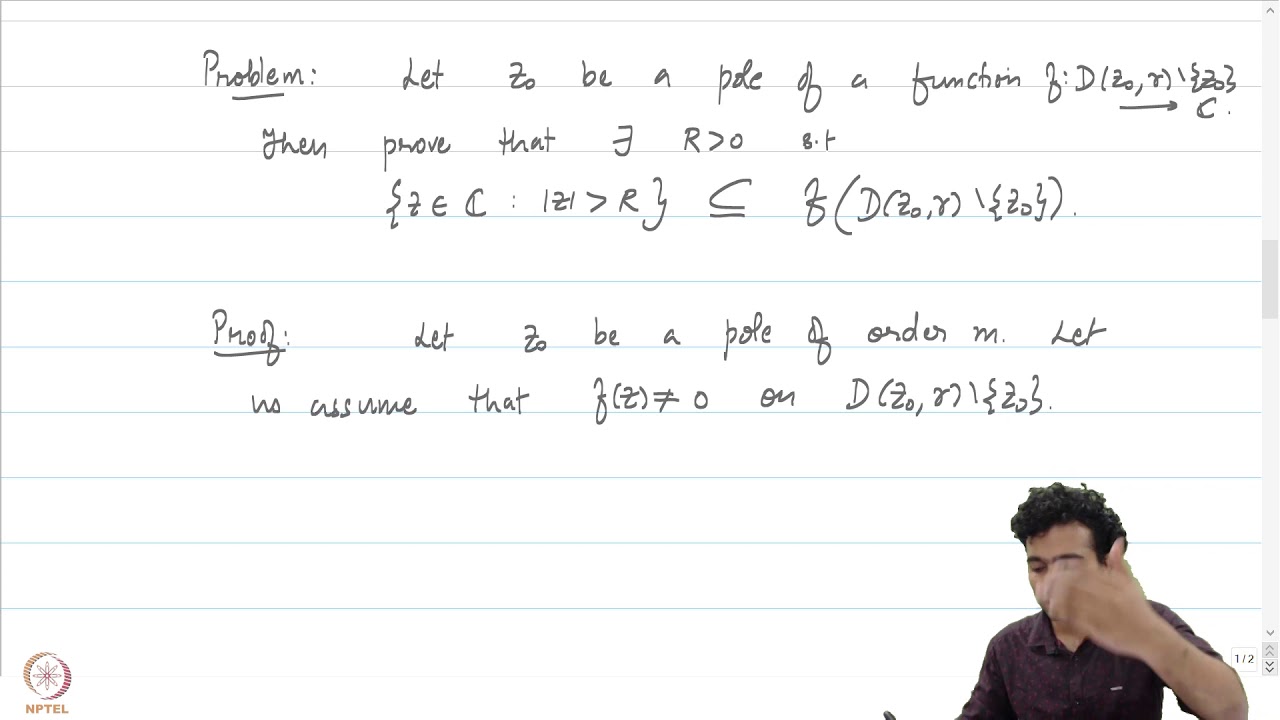 Problem: Let z₀ be a pole of a function f: D(z₀, r) \ {z₀}
⟶ ℂ.
Then prove that ∃ R > 0 s.t
{z ∈ ℂ : |z| > R} ⊆ f(D(z₀, r) \ {z₀}).
Proof: Let z₀ be a pole of order m. Let
us assume that f(z) ≠ 0 on D(z₀, r) \ {z₀}.
1 / 2
NPTEL